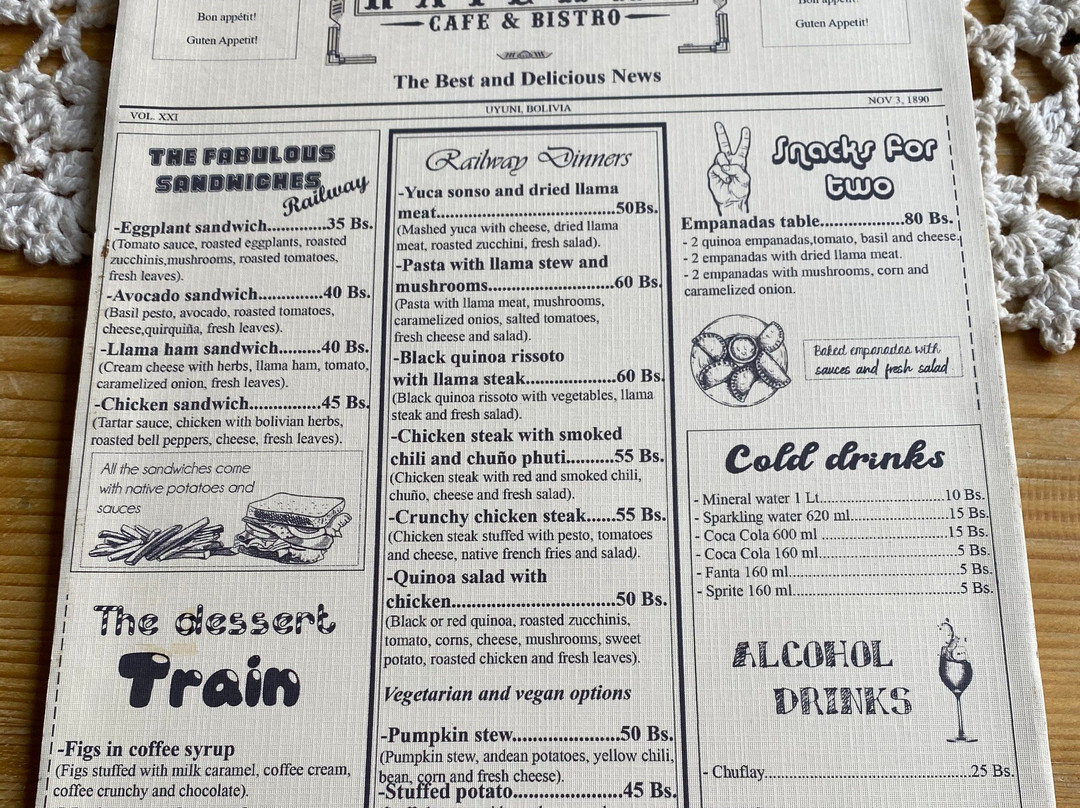 Bon appétit!
Guten Appetit!
CAFE & BISTRO
Guten Appetit!
The Best and Delicious News
VOL. XXI
UYUNI, BOLIVIA
NOV 3, 1890
THE FABULOUS
SANDWICHES
Railway
-Eggplant sandwich.............35 Bs.
(Tomato sauce, roasted eggplants, roasted
zucchinis,mushrooms, roasted tomatoes,
fresh leaves).
-Avocado sandwich..............40 Bs.
(Basil pesto, avocado, roasted tomatoes,
cheese,quirquiña, fresh leaves).
-Llama ham sandwich.........40 Bs.
(Cream cheese with herbs, llama ham, tomato,
caramelized onion, fresh leaves).
-Chicken sandwich...............45 Bs.
(Tartar sauce, chicken with bolivian herbs,
roasted bell peppers, cheese, fresh leaves).
All the sandwiches come
with native potatoes and
sauces
The dessert
Train
-Figs in coffee syrup
(Figs stuffed with milk caramel, coffee cream,
coffee crunchy and chocolate).
Railway Dinners
-Yuca sonso and dried llama
meat....................................50Bs.
(Mashed yuca with cheese, dried llama
meat, roasted zucchini, fresh salad).
-Pasta with llama stew and
mushrooms.........................60 Bs.
(Pasta with llama meat, mushrooms,
caramelized onios, salted tomatoes,
fresh cheese and salad).
-Black quinoa rissoto
with llama steak..................60 Bs.
(Black quinoa rissoto with vegetables, llama
steak and fresh salad).
-Chicken steak with smoked
chili and chuño phuti..........55 Bs.
(Chicken steak with red and smoked chili,
chuño, cheese and fresh salad).
-Crunchy chicken steak......55 Bs.
(Chicken steak stuffed with pesto, tomatoes
and cheese, native french fries and salad).
-Quinoa salad with
chicken.................................50 Bs.
(Black or red quinoa, roasted zucchinis,
tomato, corns, cheese, mushrooms, sweet
potato, roasted chicken and fresh leaves).
Vegetarian and vegan options
-Pumpkin stew......................50 Bs.
(Pumpkin stew, andean potatoes, yellow chili,
bean, corn and fresh cheese).
-Stuffed potato......................45 Bs.
Snacks for
two
Empanadas table.................80 Bs.
- 2 quinoa empanadas,tomato, basil and cheese.
- 2 empanadas with dried llama meat.
- 2 empanadas with mushrooms, corn and
caramelized onion.
Baked empanadas with
sauces and fresh salad
Cold drinks
- Mineral water 1 Lt............................10 Bs.
- Sparkling water 620 ml......................15 Bs.
- Coca Cola 600 ml .............................15 Bs.
- Coca Cola 160 ml...............................5 Bs.
- Fanta 160 ml.......................................5 Bs.
- Sprite 160 ml......................................5 Bs.
ALCOHOL
DRINKS
- Chuflay..............................................25 Bs.